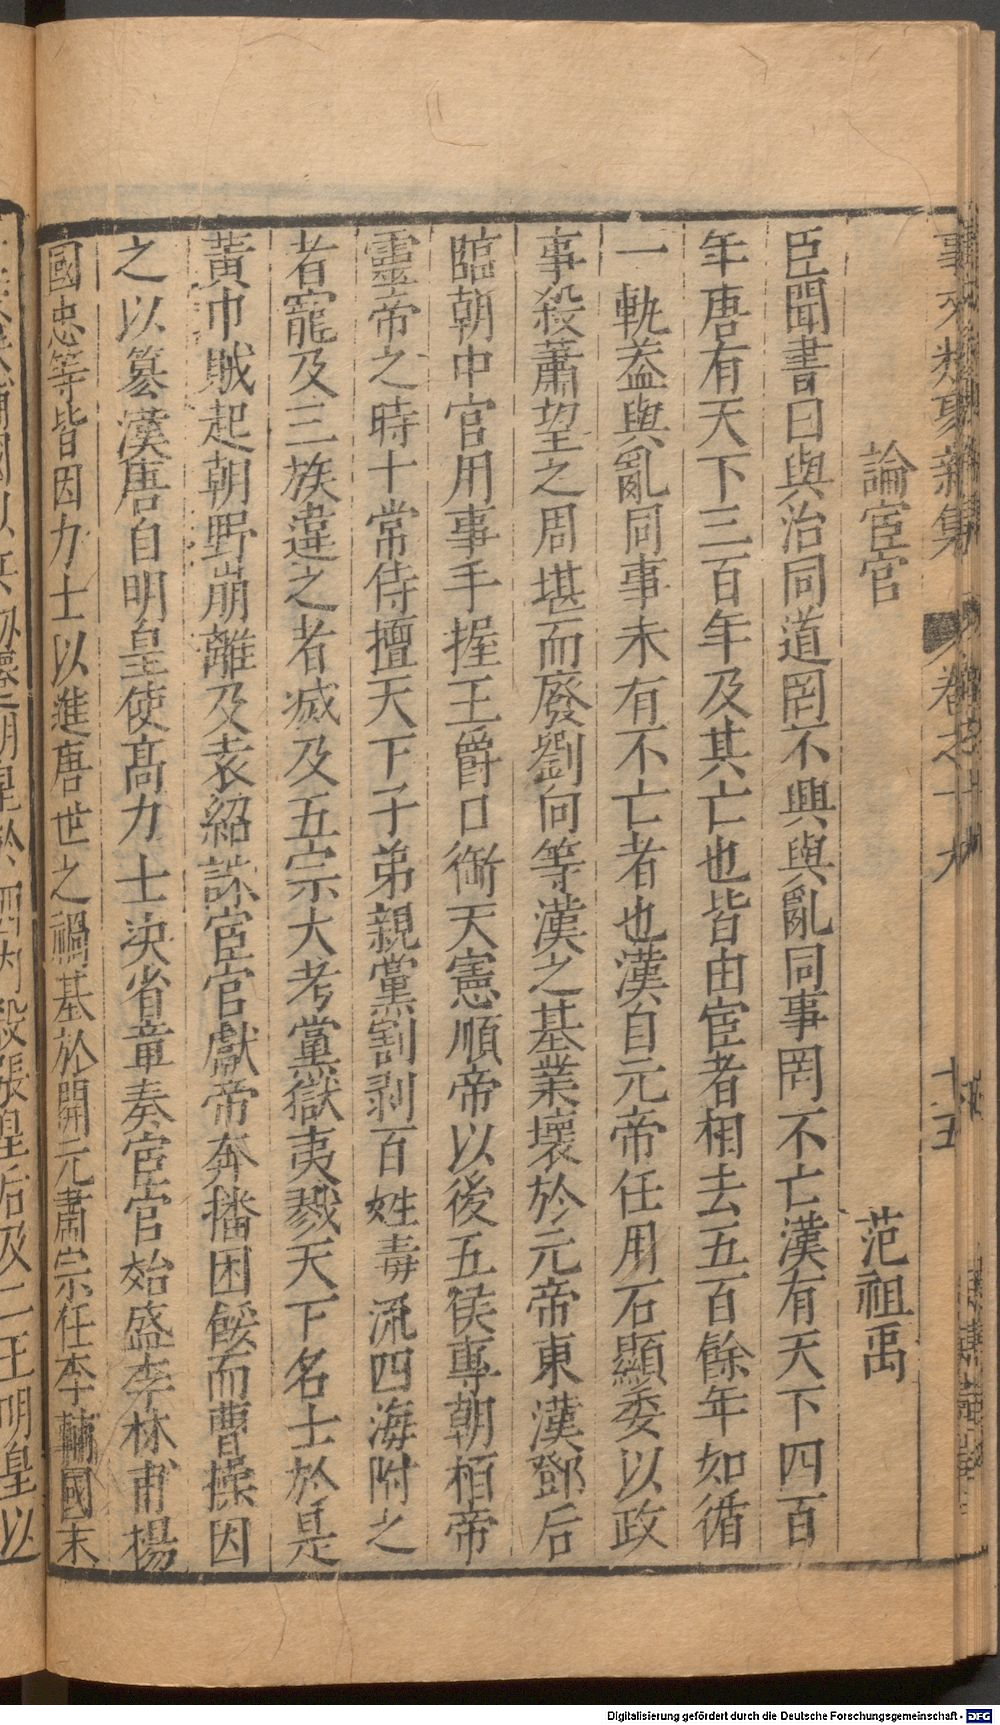 事文類聚新集 卷之十九 十五
論宦官 范祖禹
臣聞書曰與治同道罔不興與亂同事罔不亡漢有天下四百
年唐有天下三百年及其亡也皆由宦者相去五百餘年如循
一軌盖與亂同事未有不亡者也漢自元帝任用石顯委以政
事殺蕭望之周堪而廢劉向等漢之基業壞於元帝東漢鄧后
臨朝中官用事手握王爵口銜天憲順帝以後五侯專朝桓帝
靈帝之時十常侍擅天下子弟親黨割剥百姓毒流四海附之
者寵及三族違之者滅及五宗大考黨獄夷戮天下名士於是
黃巾賊起朝野崩離及袁紹誅宦官獻帝奔播困餒而曹操因
之以篡漢唐自明皇使髙力士决省章奏宦官始盛李林甫楊
國忠等皆因力士以進唐世之禍基於開元肅宗任李輔國末
殺張皇后及二王明皇以
Digitalisierung gefördert durch die Deutsche Forschungsgemeinschaft - DFG